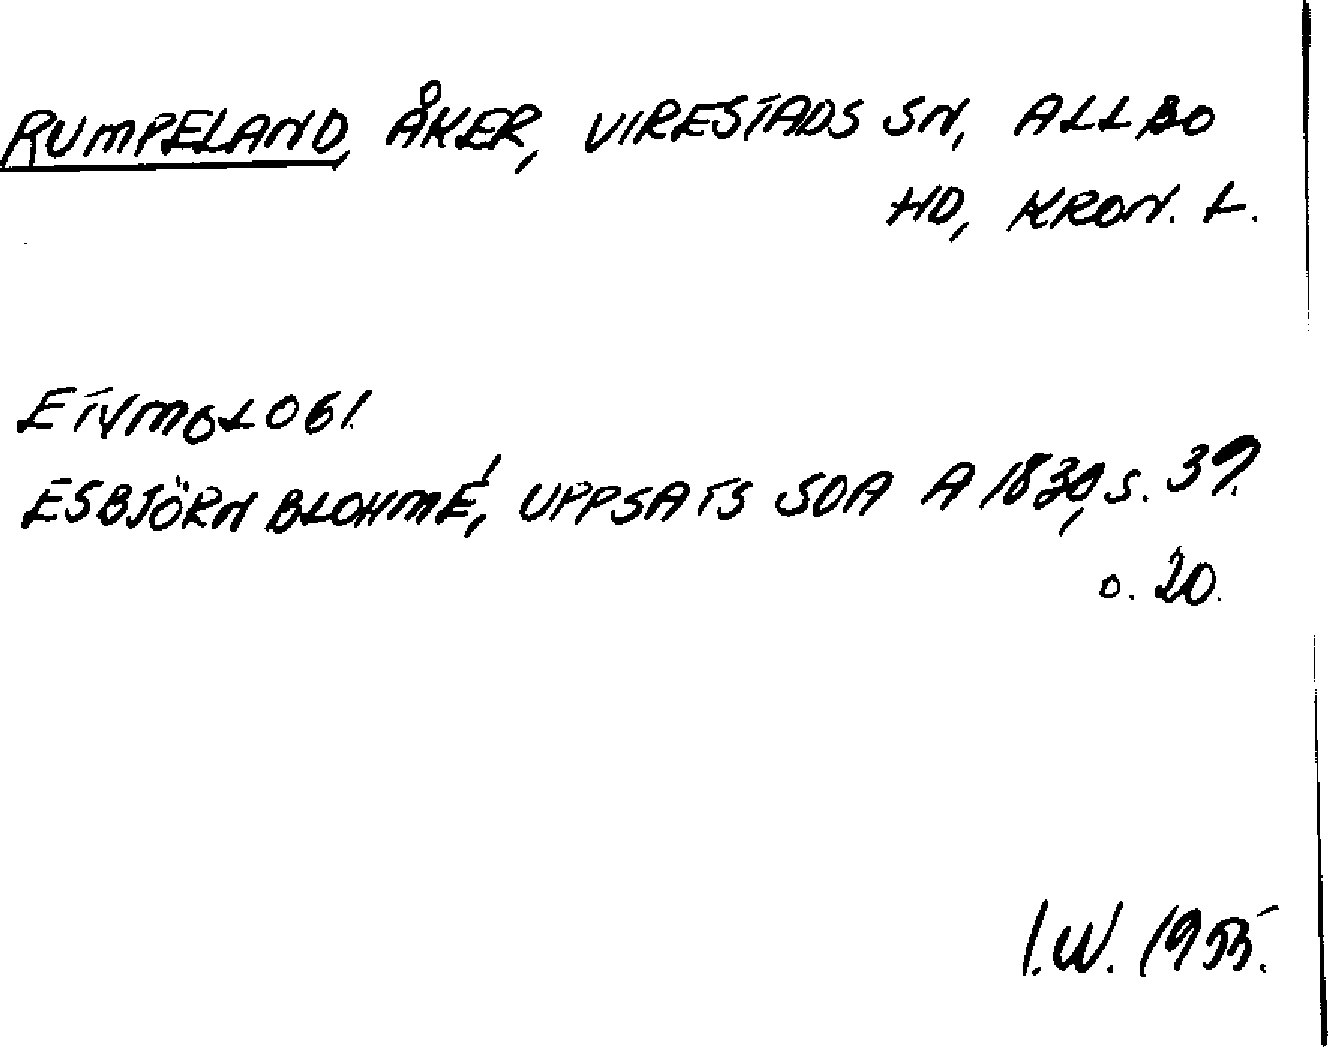 RUMPELAND, ÅKER, VIRESTADS SN, ALLBO
HD, KRON. L.
ETYMOLOGI.
ESBJÖRN BLOHMÉ, UPPSATS SOA A 1830, s. 39.
o. 20.
I.W. 1955.